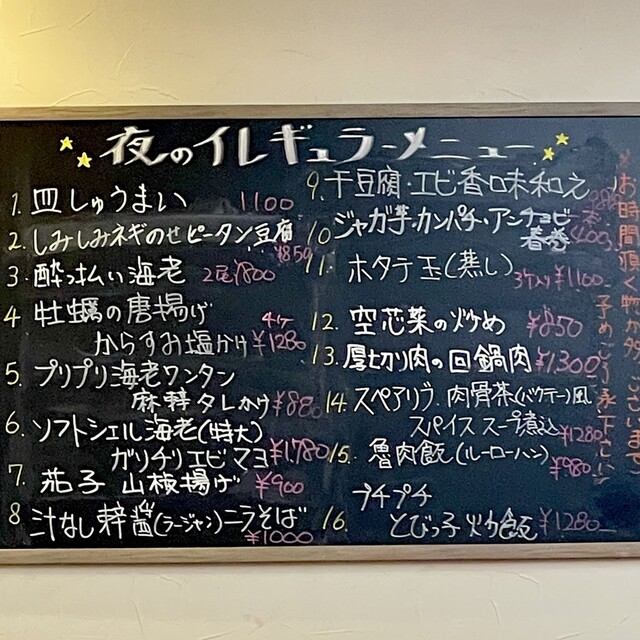 夜のイレギュラーメニュー
1. 皿しゅうまい 1100
2. しみしみネギのせピータン豆腐 ¥850
3. 酔っ払い海老 2尾¥800
4 牡蠣の唐揚げ 4ヶ
からすみ塩かけ ¥1280
5. プリプリ海老ワンタン
麻辣タレかけ ¥880
6. ソフトシェル海老(特大)
ガリチリエビマヨ ¥1,780
7. 茄子 山椒揚げ ¥900
8 汁なし辣醤(ラージャン)ニラそば ¥1000
9. 干豆腐・エビ香味和え
10 ジャガ芋・カンパチ・アンチョビ
春巻 400
11. ホタテ玉(蒸し) 3ケ入り¥1100
12. 空芯菜の炒め ¥850
13. 厚切り肉の回鍋肉 ¥1,300
14. スペアリブ 肉骨茶(バクテー)風
スパイススープ煮込 ¥1280
15. 魯肉飯(ルーローハン) ¥980
16. プチプチ
とびっ子炒飯 ¥1280
お時間頂く物が多ございます
予めご了承下さい